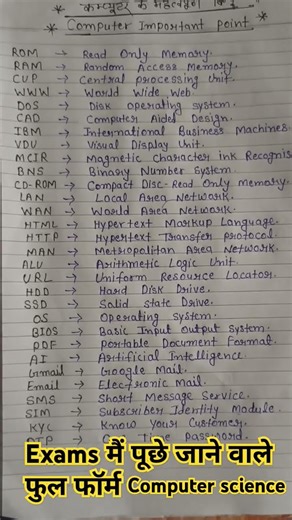 * कम्प्यूटर के महत्वपूर्ण
* Computer Important point *
ROM → Read Only Memory.
RAM → Random Access Memory.
CUP → Central processing Unit.
WWW → World Wide Web.
DOS → Disk operating system.
CAD → Computer Aided Design.
IBM → International Business Machines
VDU → Visual Display Unit.
MCIR → Magnetic Character ink Recognis
BNS → Binary Number System.
CD-ROM → Compact Disc-Read Only memory.
LAN → Local Area Network.
WAN → World Area Network.
HTML → Hypertext Markup Language.
HTTP → Hypertext Transfer protocol.
MAN → Metropolitan Area Network.
ALU → Arithmetic Logic Unit.
URL → Uniform Resource Locator.
HDD → Hard Disk Drive.
SSD → Solid State Drive.
OS → Operating System.
BIOS → Basic Input output System.
PDF → Portable Document Format.
AI → Artificial Intelligence.
Gmail → Google Mail.
Email → Electronic Mail.
SMS → Short Message Service.
SIM → Subscriber Identity Module.
KYC → Know Your Customer.
OTP → One Time Password.
Exams मैं पूछे जाने वाले
फुल फॉर्म Computer science